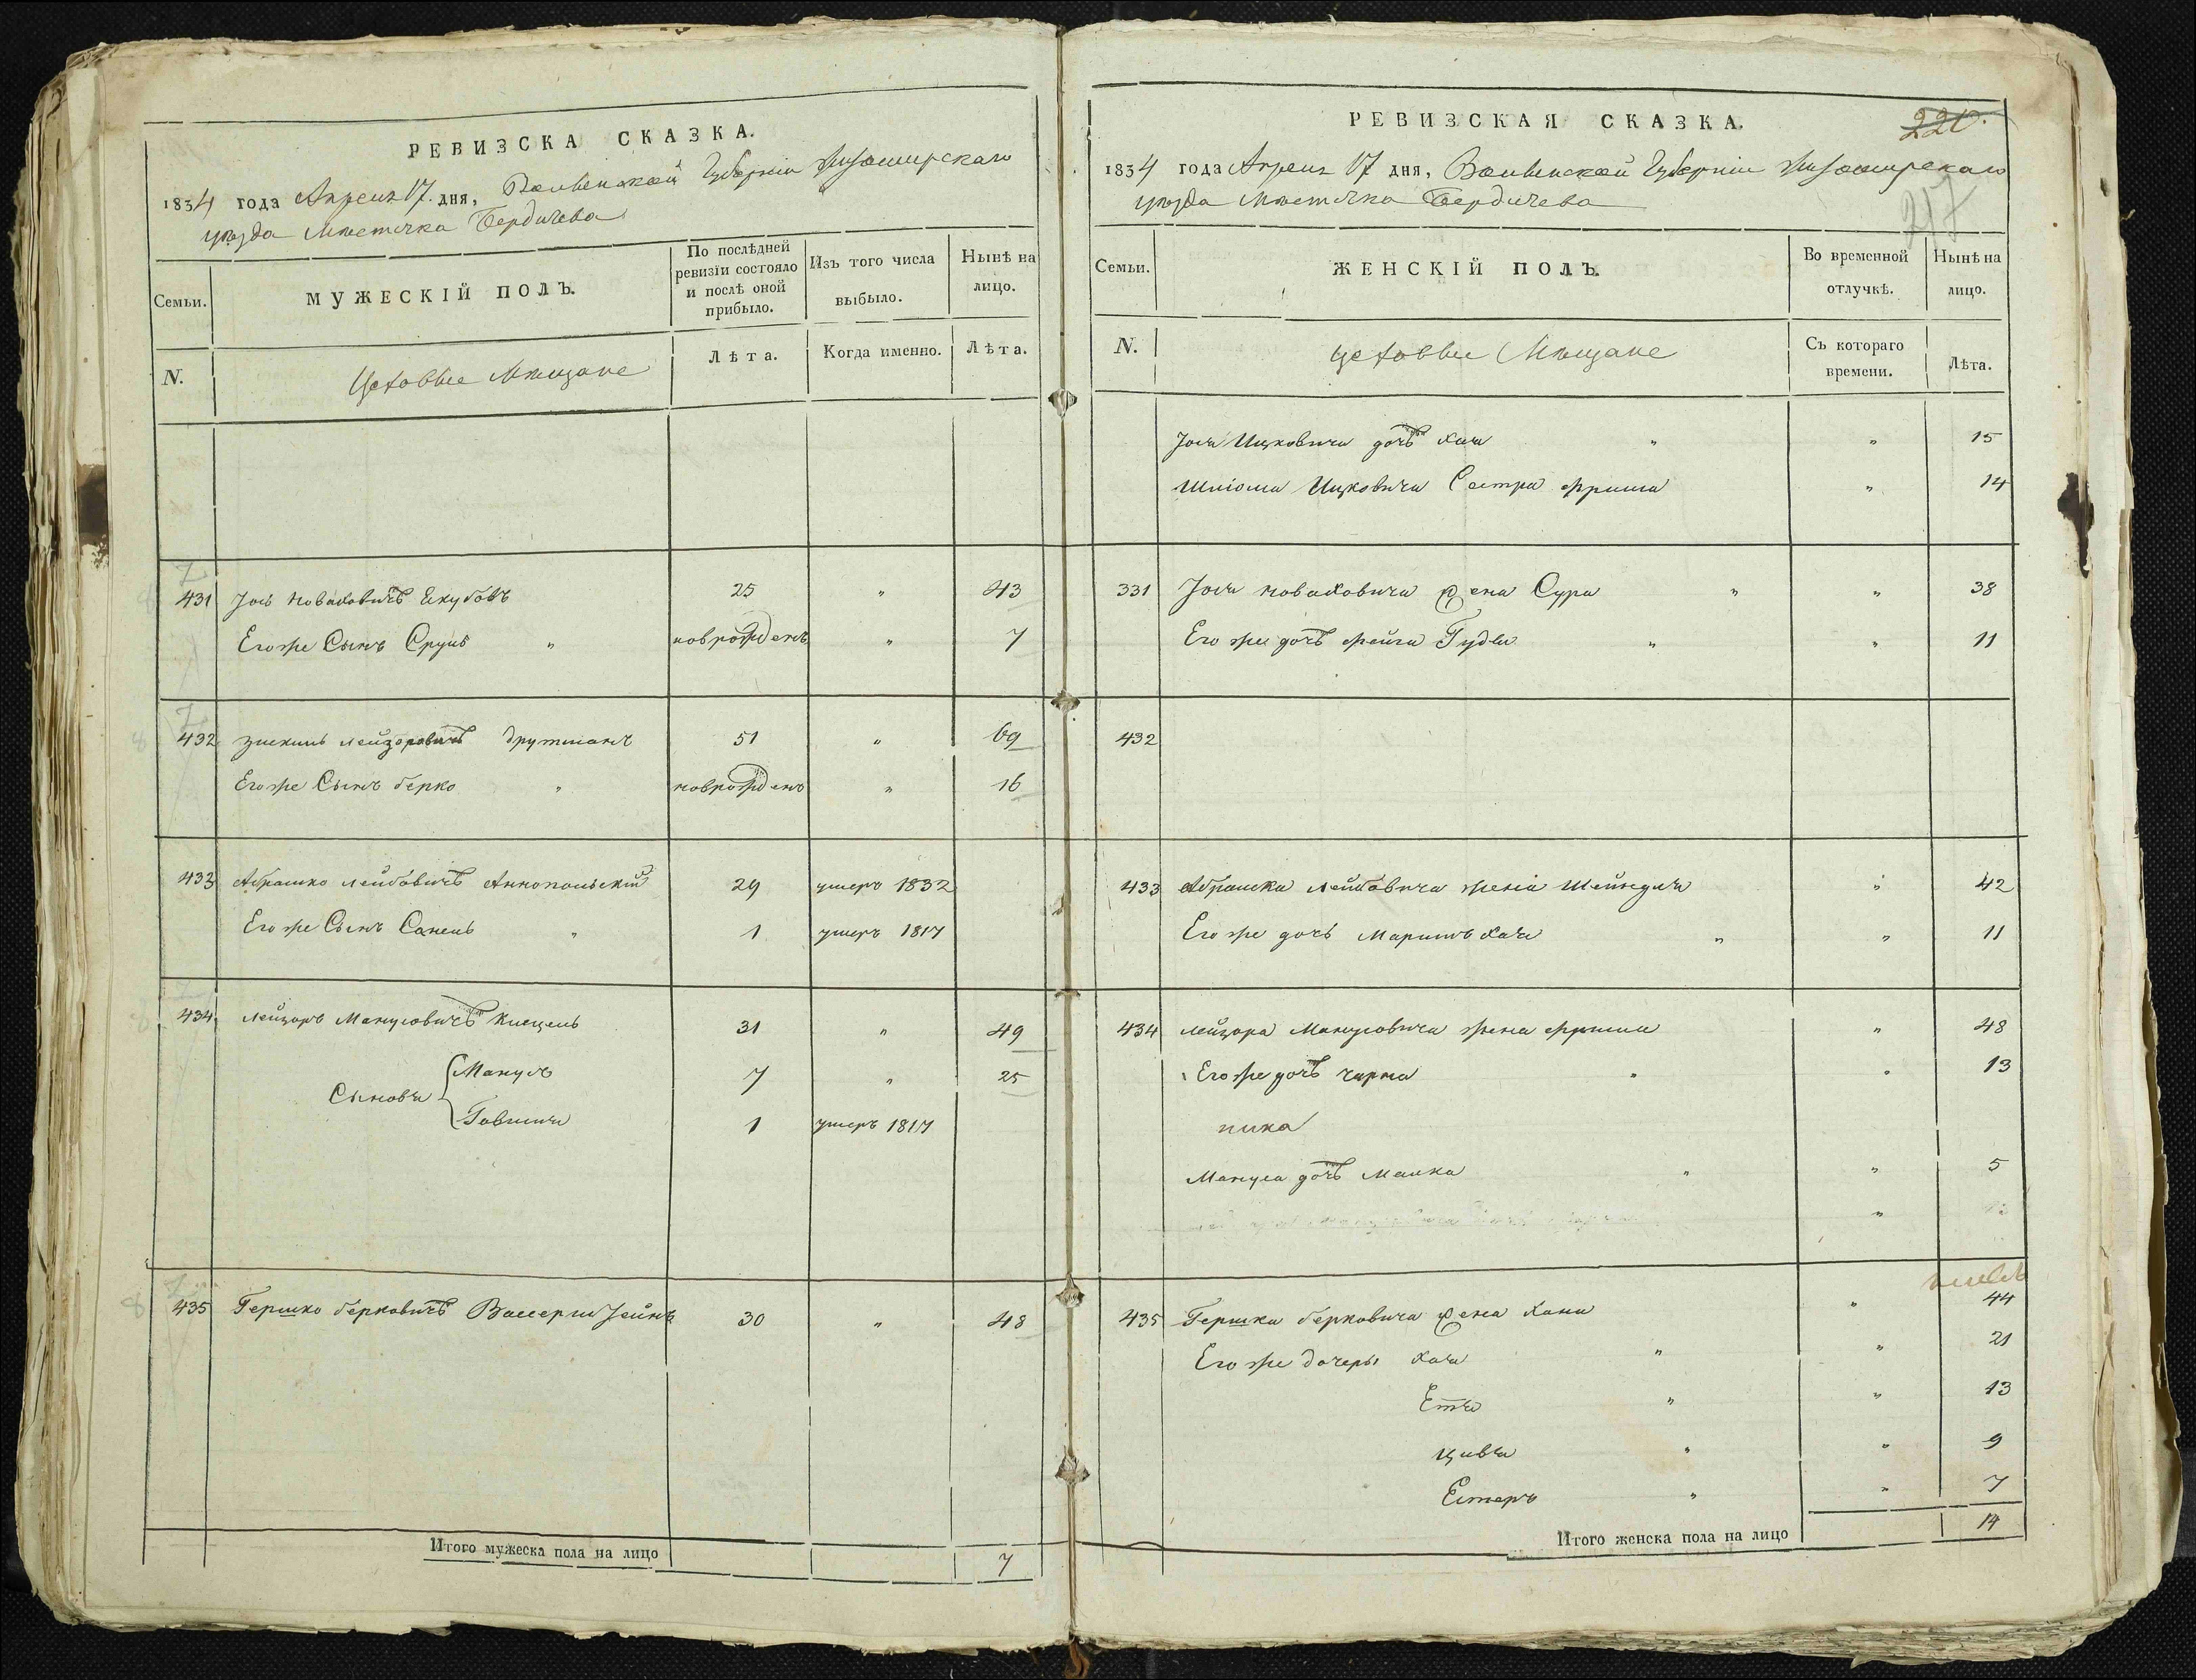 РЕВИЗСКА СКАЗКА.
1834 года Апреля 17. дня, Волынской Губерніи Житомирскаго
уѣзда Мѣстечка Бердичева
Семьи.
МУЖЕСКІЙ ПОЛЪ.
По послѣдней
ревизіи состояло
и послѣ оной
прибыло.
Изъ того числа
выбыло.
Нынѣ на
лицо.
N.
Цеховые Мѣщане
Лѣта.
Когда именно.
Лѣта.
431 Іось Новаховичъ Якубовъ 25 " 43
Его же Сынъ Сруль " новрожденъ " 7
432 Лейзоровичъ Друтманъ 51 " 69
Его же Сынъ Берко " новрожденъ " 16
433 Абрашко Лейбовичъ Аннопольскій 29 умеръ 1832
Его же Сынъ Санель " 1 умеръ 1817
434 Лейзоръ Мануловичъ 31 " 49
Сыновя
Манулъ 7 " 25
1 умеръ 1817
435 Гершко Берковичъ 30 " 48
Итого мужеска пола на лицо 7
РЕВИЗСКАЯ СКАЗКА.
220.
217
1834 года Апреля 17 дня, Волынской Губерніи Житомирскаго
уѣзда Мѣстечка Бердичева
Семьи.
ЖЕНСКІЙ ПОЛЪ.
Во временной
отлучкѣ.
Нынѣ на
лицо.
N.
Цеховые Мѣщане
Съ котораго
времени.
Лѣта.
Іося Ицковича дочь Хая " " 15
Шліома Ицковича Сестра Фрима " 14
331 Іося Новаховича жена Сура " " 38
Его же дочь Фейга Гудля " " 11
432
433 Абрашка Лейбовича жена Шейндля " 42
Его же дочь Маримъ Хая " " 11
434 Лейзора Мануловича жена Фрима " 48
Его же дочь Чарна " " 13
Манула дочь Малка " " 5
"
435 Гершка Берковича жена Хана " 44
Его же дочеры Хая " " 21
Етя " " 13
Цивя " " 9
Естеръ " " 7
Итого женска пола на лицо 14